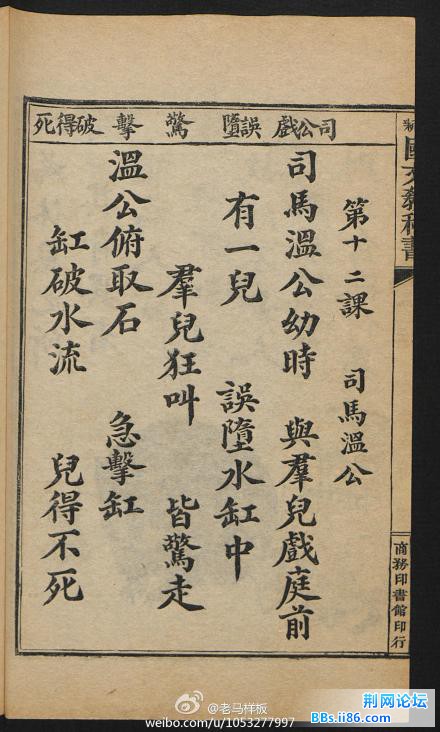 國文教科書
商務印書館印行
司公戲 誤墮 驚 擊 破得死
第十二課 司馬溫公
司馬溫公幼時 與羣兒戲庭前
有一兒 誤墮水缸中
羣兒狂叫 皆驚走
溫公俯取石 急擊缸
缸破水流 兒得不死
@老马样板
weibo.com/u/1053277997
荆网论坛
BBs.ii86.com